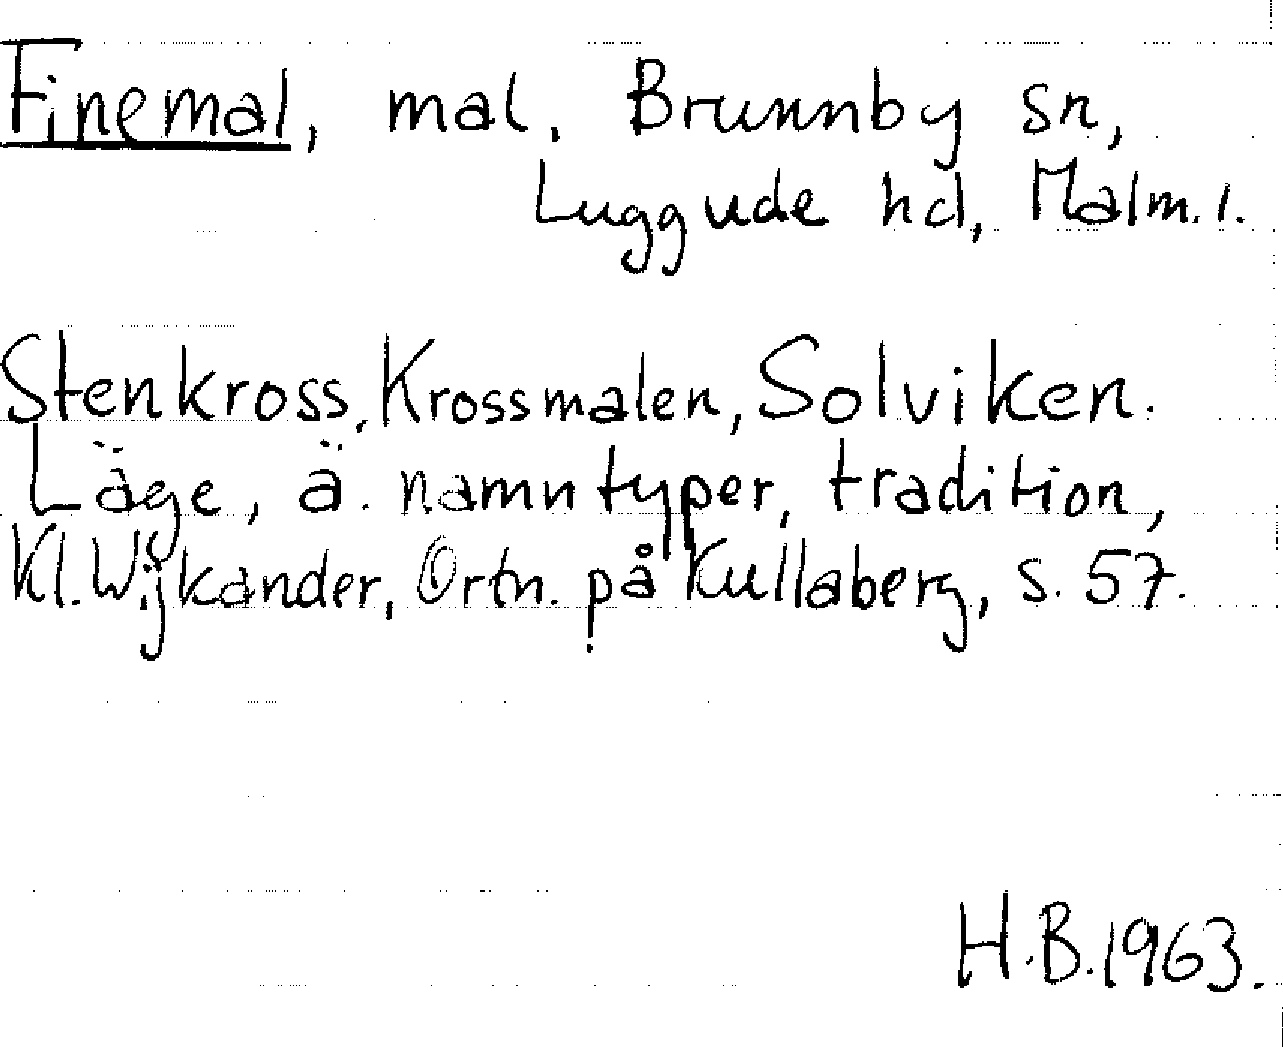 Finemal, mal. Brunnby sn,
Luggude hd, Malm. l.
Stenkross, Krossmalen, Solviken.
Läge, ä. namntyper, tradition,
Kl. Wijkander, Ortn. på Kullaberg, s. 57.
H.B. 1963.